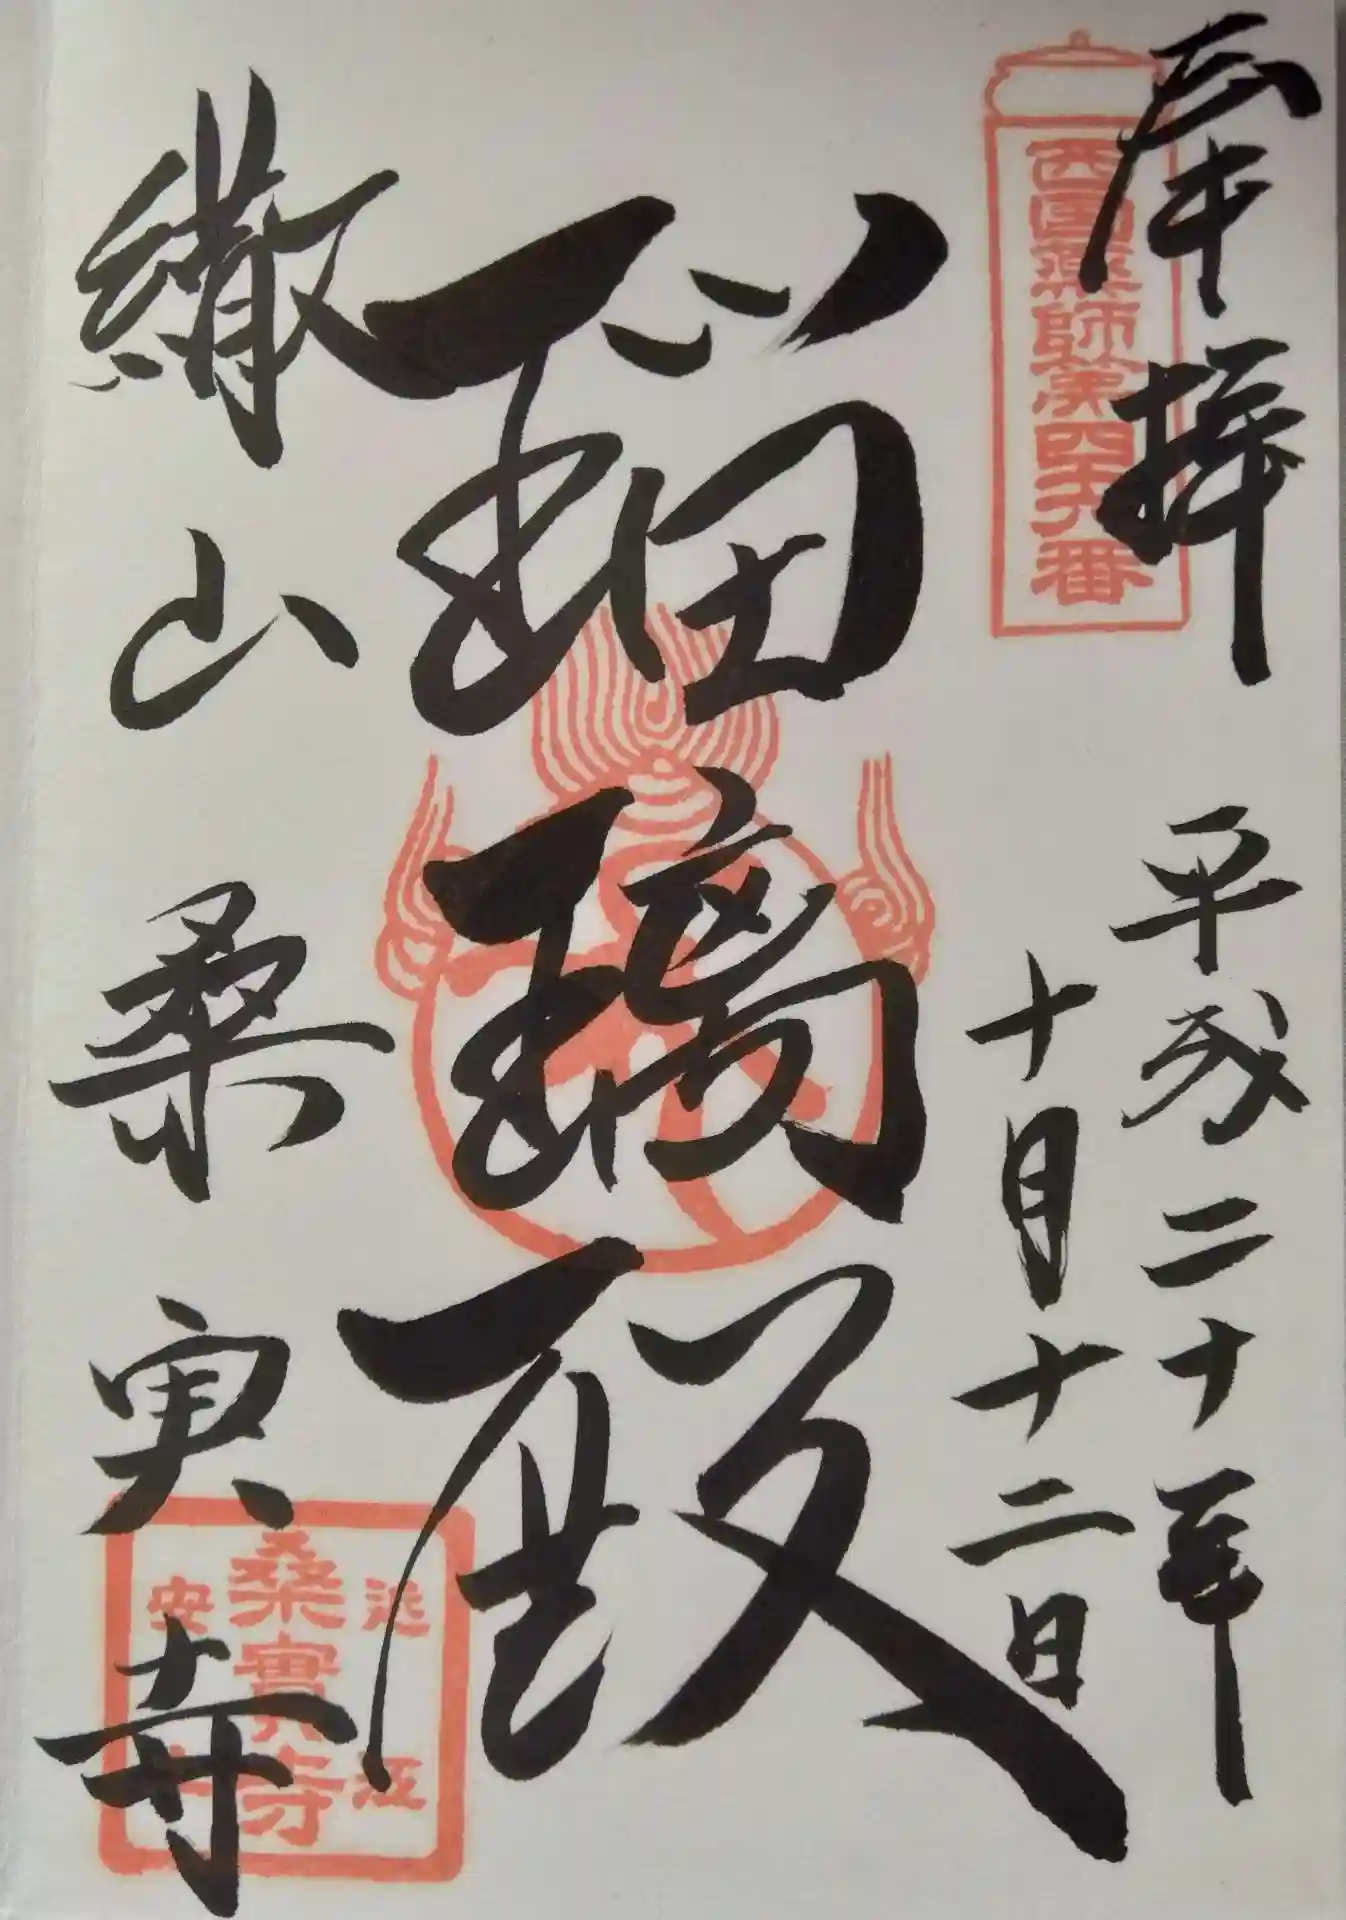 奉拝
西国薬師第四十六番
平成二十年
十月十二日
瑠璃殿
繖山
桑実寺
近江
桑實寺
安土